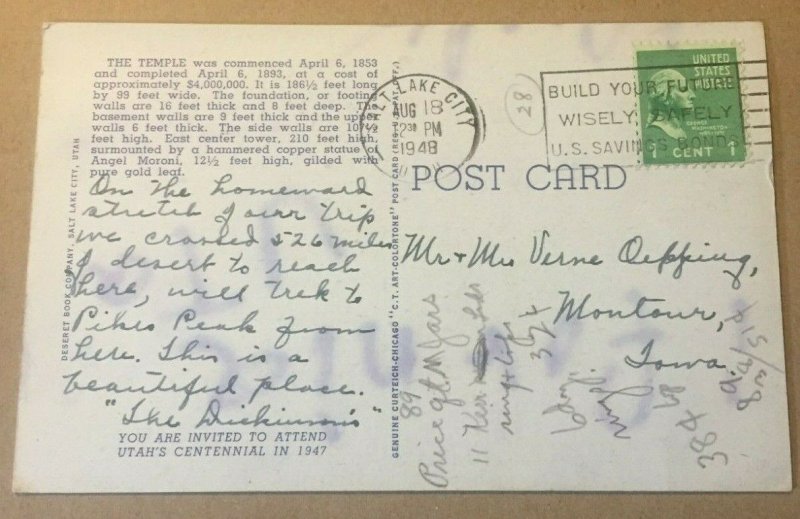 THE TEMPLE was commenced April 6, 1853
and completed April 6, 1893, at a cost of
approximately $4,000,000. It is 186½ feet long
by 99 feet wide. The foundation, or footing
walls are 16 feet thick and 8 feet deep. The
basement walls are 9 feet thick and the upper
walls 6 feet thick. The side walls are 107½
feet high. East center tower, 210 feet high,
surmounted by a hammered copper statue of
Angel Moroni, 12½ feet high, gilded with
pure gold leaf.
On the homeward
stretch of our trip
we crossed 526 miles
of desert to reach
here, will trek to
Pikes Peak from
here. This is a
beautiful place.
"The Dickinson's"
YOU ARE INVITED TO ATTEND
UTAH'S CENTENNIAL IN 1947
DESERET BOOK COMPANY, SALT LAKE CITY, UTAH
GENUINE CURTEICH-CHICAGO "C.T. ART-COLORTONE" POST CARD (REG. U.S. PAT. OFF.)
SALT LAKE CITY
AUG 18
12 30 PM
1948
281
BUILD YOUR FUTURE
WISELY, SAFELY
U.S. SAVINGS BONDS
UNITED
STATES
POSTAGE
GEORGE WASHINGTON
1 CENT 1
POST CARD
Mr + Mrs Verne Oepping,
Montour,
Iowa.
89
Price qt M Jars
11 Kerr
rings + lids
394
38 & 68